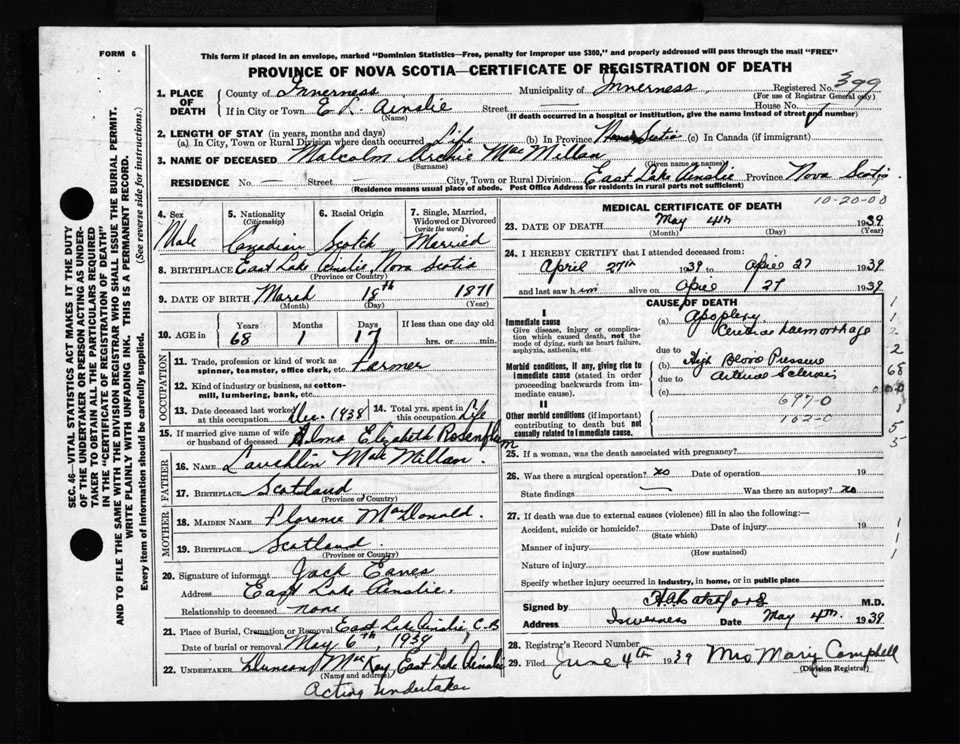 FORM 6
This form if placed in an envelope, marked "Dominion Statistics—Free, penalty for improper use $300," and properly addressed will pass through the mail "FREE"
PROVINCE OF NOVA SCOTIA—CERTIFICATE OF REGISTRATION OF DEATH
1. PLACE OF DEATH { County of Inverness Municipality of Inverness Registered No. 399
(For use of Registrar General only)
If in City or Town E L. Ainslie Street — House No.
(Name) (If death occurred in a hospital or institution, give the name instead of street and number)
2. LENGTH OF STAY (in years, months and days)
(a) In City, Town or Rural Division where death occurred Life (b) In Province Nova Scotia (c) In Canada (if immigrant)
3. NAME OF DECEASED Malcolm Archie MacMillan
(Surname) (Given name or names)
RESIDENCE No. — Street — City, Town or Rural Division East Lake Ainslie Province Nova Scotia
(Residence means usual place of abode. Post Office Address for residents in rural parts not sufficient)
4. Sex Male
5. Nationality (Citizenship) Canadian
6. Racial Origin Scotch
7. Single, Married, Widowed or Divorced (write the word) Married
8. BIRTHPLACE East Lake Ainslie Nova Scotia
(Province or Country)
9. DATE OF BIRTH March 18th 1871
(Month) (Day) (Year)
10. AGE in Years 68 Months 1 Days 17 If less than one day old
hrs. or min.
OCCUPATION
11. Trade, profession or kind of work as spinner, teamster, office clerk, etc. Farmer
12. Kind of industry or business, as cotton-mill, lumbering, bank, etc.
13. Date deceased last worked at this occupation Dec. 1938
14. Total yrs. spent in this occupation Life
15. If married give name of wife or husband of deceased Alma Elizabeth
FATHER
16. NAME Lauchlin MacMillan
17. BIRTHPLACE Scotland
(Province or Country)
MOTHER
18. MAIDEN NAME Florence MacDonald.
19. BIRTHPLACE Scotland.
(Province or Country)
20. Signature of informant Jack Eaves
Address East Lake Ainslie.
Relationship to deceased none
21. Place of Burial, Cremation or Removal East Lake Ainslie C.B
Date of burial or removal May 6th 1939
22. UNDERTAKER Duncan MacKay, East Lake Ainslie
(Name and address)
Acting Undertaker
MEDICAL CERTIFICATE OF DEATH
10-20-00
23. DATE OF DEATH May 4th 1939
(Month) (Day) (Year)
24. I HEREBY CERTIFY that I attended deceased from:
April 27th 1939 to April 27 1939
and last saw him alive on April 27 1939
CAUSE OF DEATH
I
Immediate cause
Give disease, injury or complication which caused death, not the mode of dying, such as heart failure, asphyxia, asthenia, etc
(a) Apoplexy
Cerebral haemorrhage
due to
Morbid conditions, if any, giving rise to immediate cause (stated in order proceeding backwards from immediate cause).
(b) High Blood Pressure
due to Arterial Sclerosis
(c)
697-0
102-0
II
Other morbid conditions (if important) contributing to death but not causally related to immediate cause.
25. If a woman, was the death associated with pregnancy?
26. Was there a surgical operation? no Date of operation 19
State findings — Was there an autopsy? no
27. If death was due to external causes (violence) fill in also the following:—
Accident, suicide or homicide? Date of injury 19
(State which)
Manner of injury
(How sustained)
Nature of injury
Specify whether injury occurred in industry, in home, or in public place
Signed by M.D.
Address Inverness Date May 4th. 1939
28. Registrar's Record Number
29. Filed June 4th 1939 Mrs Mary Campbell
(Division Registrar)
SEC. 46—VITAL STATISTICS ACT MAKES IT THE DUTY
OF THE UNDERTAKER OR PERSON ACTING AS UNDERTAKER TO OBTAIN ALL THE PARTICULARS REQUIRED
IN THE "CERTIFICATE OF REGISTRATION OF DEATH"
AND TO FILE THE SAME WITH THE DIVISION REGISTRAR WHO SHALL ISSUE THE BURIAL PERMIT.
WRITE PLAINLY WITH UNFADING INK. THIS IS A PERMANENT RECORD.
Every item of information should be carefully supplied. (See reverse side for instructions.)